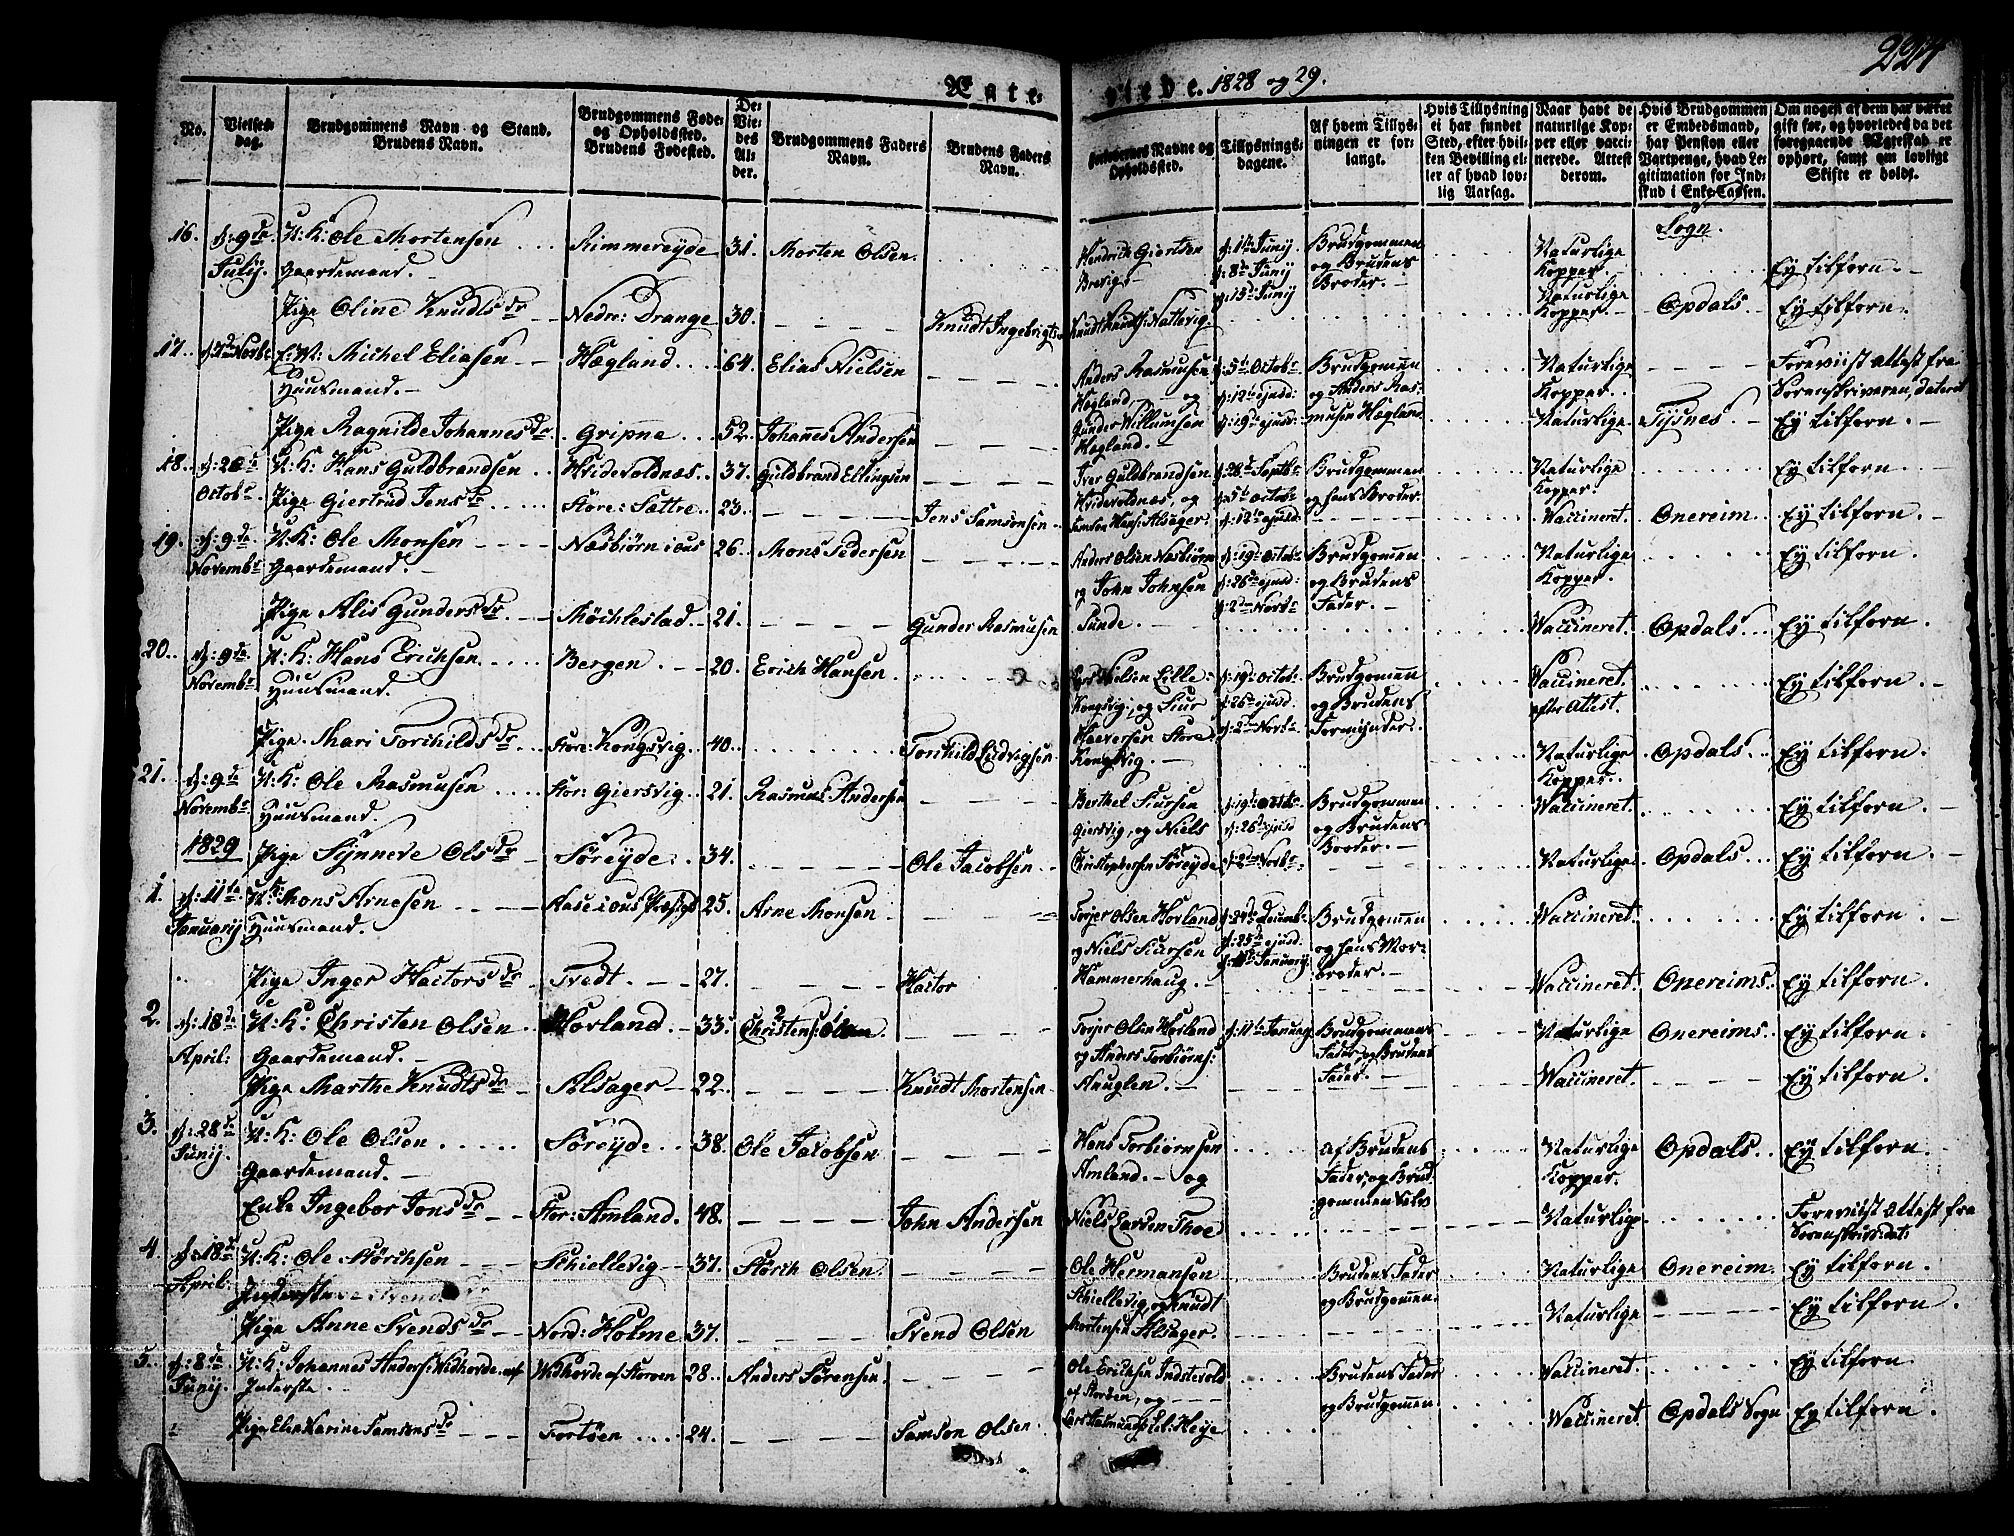 224
Egteviede. 1828 og 29.
No.
Vielses-dag.
Brudgommens Navn og Stand. Brudens Navn.
Brudgommens Føde- og Opholdssted. Brudens Fødested.
De Viedes Alder.
Brudgommens Faders Navn.
Brudens Faders Navn.
Forlovernes Navne og Opholdssted.
Tillysnings-dagene.
Af hvem Tillysningen er forlangt.
Hvis Tillysning ei har fundet Sted, efter hvilken Bevilling eller af hvad lovlig Aarsag.
Naar havt de naturlige Kopper eller vaccinerede. Attest derom.
Hvis Brudgommen er Embedsmand, har Pension eller Vartpenge, hvad Legitimation for Indskud i Enke-Cassen.
Om nogen af dem har været gift før, og hvorledes da det foregaaende Ægteskab er ophørt, samt om lovligt Skifte er holdt.
Sogn.
16. d: 9de Julij. U:K: Ole Mortensen Gaardemand. Rimmereyde 31. Morten Olsen. Hendrik Giertsen Brevig. d: 1te Junij d: 8de Junij d: 15de Junij Brudgommen og Brudens Broder. Naturlige Kopper. Ey tilforn.
Pige Oline Knudtsdr Nedre: Drange 30. Knudt Ingebrigts. Knudt Knudts: Nattevig. Naturlige Kopper. Opdals Ey tilforn.
17. E:M: Michel Eliasen Huusmand. Hægland 64. Elias Nielsen Anders Rasmusen Hægland, og d: 5te Octobr d: 12te ejusd: Brudgommen og Anders Rasmusen Hægland. Naturlige Kopper. Foreviist attest fra Sorenskriveren, dateret
Pige Ragnilde Johannesdr Gripne 52. Johannes Andersen Gunder Willumsen Hægland. d: 19de ejusd: Naturlige Tysnes Ey tilforn.
18. d: 20de Octobr U:K: Hans Guldbrandsen Hvidevoldnæs 37. Guldbrand Ellingsen Iver Guldbrandsen Hvidevoldnæs, og d: 28de Septbr d: 5te Octobr Brudgommen og hans Broder. Naturlige Kopper. Ey tilforn
Pige Giertrud Jensdr Store: Sættre 23. Jens Samsonsen Samson Hans: Alsager. d: 12te ejusd: Vaccineret. Onereim Ey tilforn.
19. d: 9de Novembr U:K: Ole Monsen Gaardemand. Næsbiørn i ous 26. Mons Pedersen Anders Olsen Næsbiørn og John Johnsen d: 19de Octobr d: 26de ejusd: d: 2den Novbr Brudgommen og Brudens Fader. Naturlige Kopper. Ey tilforn.
Pige Alis Gundersdr Møchlestad 21. Gunder Rasmusen Sunde. Vaccineret. Opdals Ey tilforn.
20. d: 9de Novembr U:K: Hans Erichsen Huusmand. Bergen 20. Erich Hansen Lars Nielsen Lille Kongsvig, og Siur d: 19de Octobr d: 26de ejusd: d: 2den Novbr Brudgommen og Brudens Formynder. Vaccineret. efter Attest. Ey tilforn
Pige Mari Torchildsdr Store: Kongsvig 40. Torchild Ludvigsen Store Kongsvig. Naturlige Kopper. Opdals Ey tilforn.
21. d: 9de Novembr U:K: Ole Rasmusen Huusmand. Stor: Giersvig 21. Rasmus Andersen Berthel Siursen Giersvig, og Niels d: 19de Octobr d: 26de ejusd: Brudgommen og Brudens Broder. Vaccineret. Ey tilforn.
1829
Pige Synneve Olsdr Søreyde 34. Ole Jacobsen Christophersen Søreyde d: 2den Novbr Naturlige Opdals Ey tilforn.
1. d: 11te Januarij U:K: Mons Arnesen Huusmand. Aase i ous Præsteg 25. Arne Monsen Torjer Olsen Hovland og Niels Siursen d: 21de Decembr d: 25de ejusd: Brudgommen og hans Morbroder. Vaccineret. Ey tilforn.
Pige Inger Hactorsdr Tvedt 27. Hactor Hammerhaug. Vaccineret. Onereims Ey tilforn.
2. d: 18de April: U:K: Christen Olsen Gaardemand. Hovland 33. Christens: Olsen Torjer Olsen Hovland og Anders Torbiørns: d: 11te Januarij Brudgommens Fader og Brudens Fader. Naturlige Onereims Ey tilforn.
Pige Marthe Knudtsdr Alsager 22. Knudt Mortensen Hauglen. Vaccineret. Ey tilforn.
3. d: 28de Junij. U:K: Ole Olsen Gaardemand. Søreyde 38. Ole Jacobsen Hans Torbiørnsen Amland. og Af Brudens Fader, og Brudgommen selv Naturlige Kopper. Opdals Ey tilforn.
Enke Ingebor Jonsdr Stor: Amland. 48. John Andersen Niels Larsen Thoe Naturlige Foreviist attest fra Sorenskriv: dat:
4. d: 18de April: U:K: Ole Størchsen Inderste Schiellevig 37. Størch Olsen Ole Hermansen Schiellevig, og Knudt Brudens Fader og Brudgommen. Naturlige Onereim Ey tilforn.
Pige Anne Svendsdr Nord: Holme 37. Svend Olsen Mortensen Alsager. Naturlige Ey tilforn.
5. d: 8de Junij. U:K: Johannes Anders: Nidhorde af Inderste Nidhorde af Storøen 28 Anders Sørensen. Ole Erichsen Indstevold af Storøen, og Brudens Fader og Brudgommen. Vaccineret. Ey tilforn
Pige Elen Karine Samsonsdr Fortøen 24. Samson Olsen Vaccineret Opdals Sogn Ey tilforn